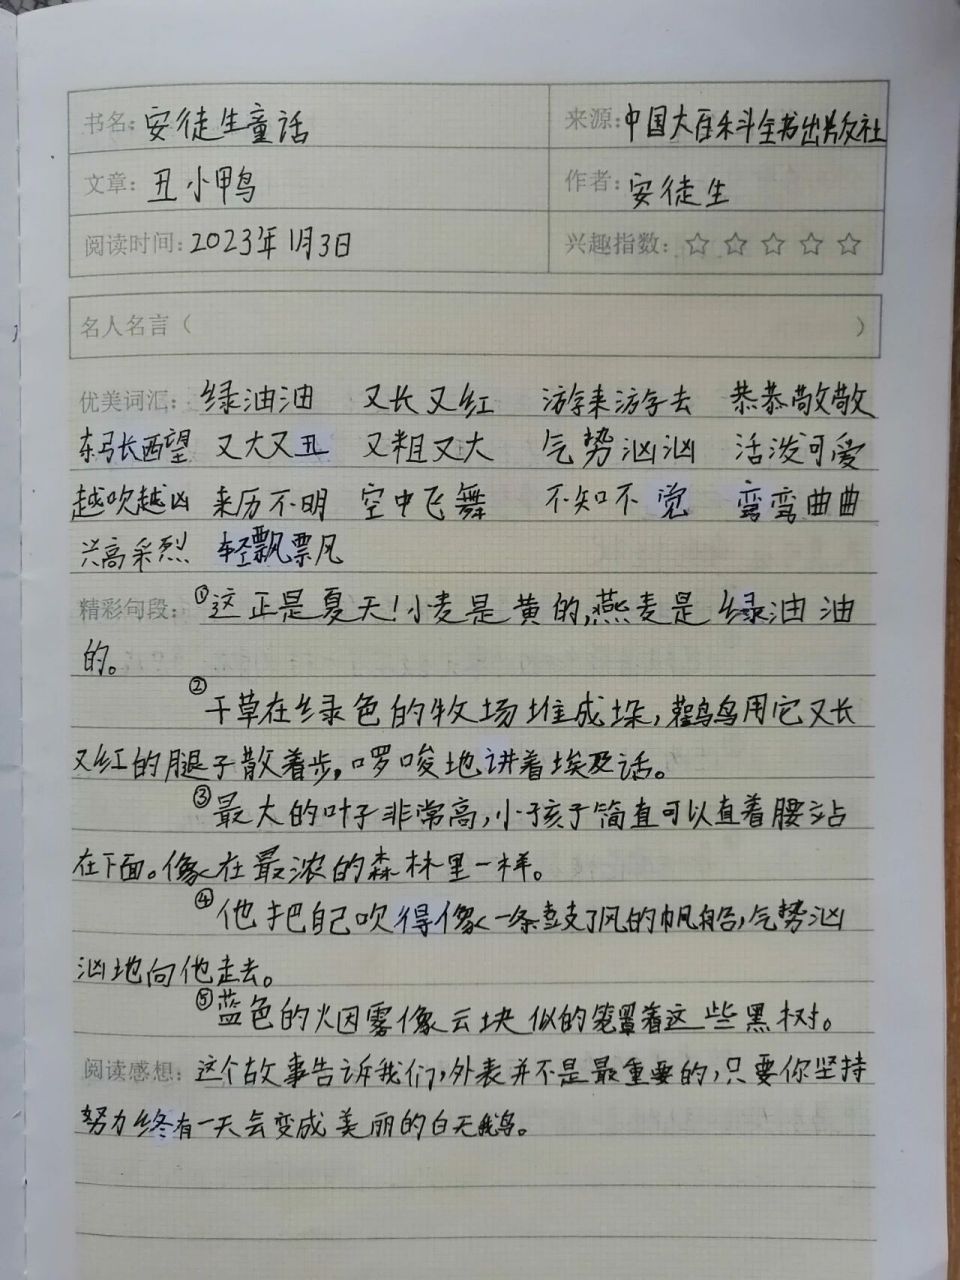 书名: 安徒生童话 来源: 中国大百科全书出版社
文章: 丑小鸭 作者: 安徒生
阅读时间: 2023年1月3日 兴趣指数: ☆ ☆ ☆ ☆ ☆
名人名言（ ）
优美词汇: 绿油油 又长又红 游来游去 恭恭敬敬
东张西望 又大又丑 又粗又大 气势汹汹 活泼可爱
越吹越凶 来历不明 空中飞舞 不知不觉 弯弯曲曲
兴高采烈 轻飘飘
精彩句段: ①这正是夏天!小麦是黄的,燕麦是绿油油
的。
②干草在绿色的牧场堆成垛,鹳鸟用它又长
又红的腿子散着步,啰唆地讲着埃及话。
③最大的叶子非常高,小孩子简直可以直着腰站
在下面。像在最浓的森林里一样。
④他把自己吹得像一条鼓了风的帆船,气势汹
汹地向他走去。
⑤蓝色的火因雾像云块似的笼罩着这些黑树。
阅读感想: 这个故事告诉我们,外表并不是最重要的,只要你坚持
努力终有一天会变成美丽的白天鹅。